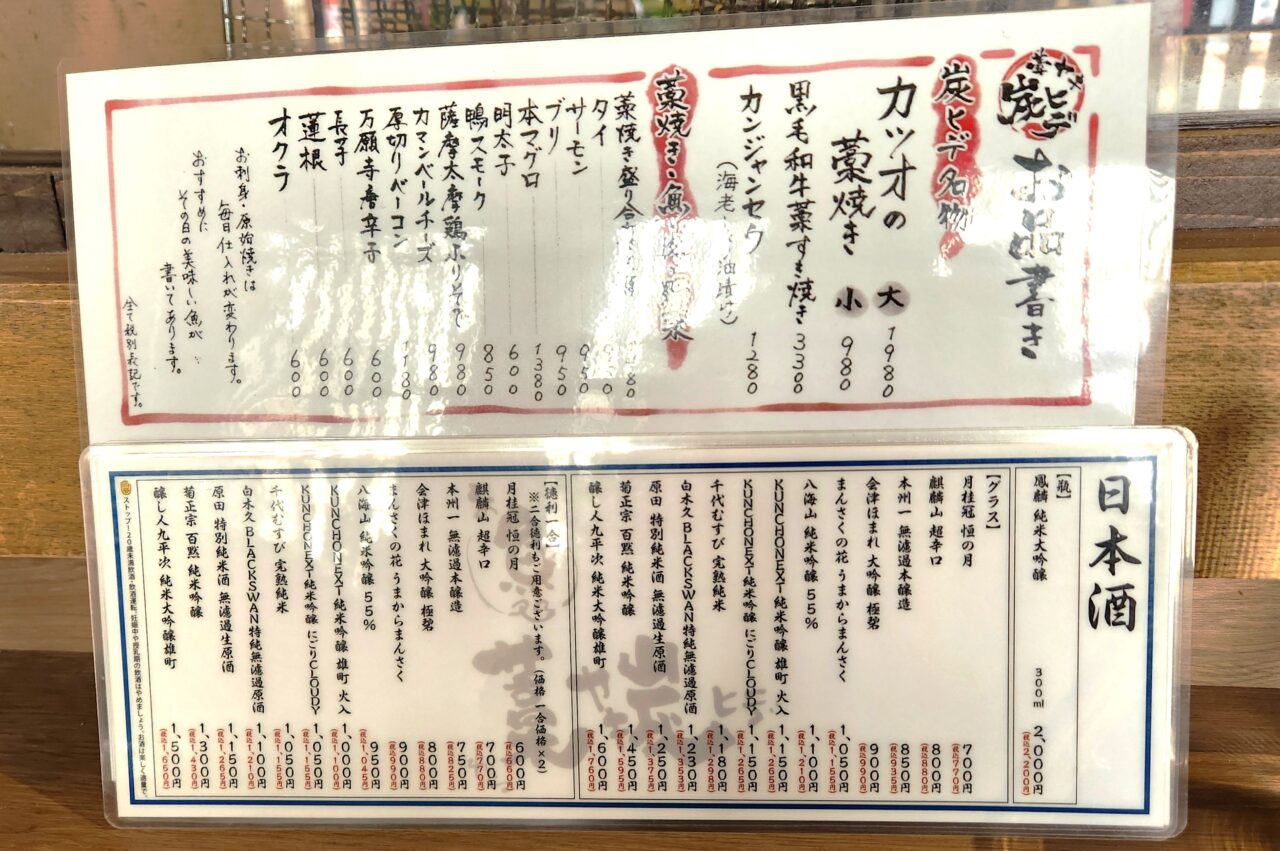 藁やき
炭ヒデ
お品書き
炭ヒデ名物
カツオの
藁焼き
大 1980
小 980
黒毛和牛藁すき焼き 3300
カンジャンセウ 1280
(海老
油漬け)
藁焼き・魚
藁焼き盛り合
タイ
サーモン 950
ブリ 950
本マグロ 1380
明太子 600
鴨スモーク 850
薩摩太摩鶏 980
カマンベールチーズ 980
厚切りベーコン 1180
万願寺唐辛子 600
長芋 600
蓮根 600
オクラ 600
お刺身・原始焼きは
毎日仕入れが変わります。
おすすめに
その日の美味しい魚が
書いてあります。
全て税別表記です。
日本酒
【瓶】
鳳麟 純米大吟醸 300ml 2,000円(税込2,200円)
【グラス】
月桂冠 恒の月 700円(税込770円)
麒麟山 超辛口 800円(税込880円)
本州一 無濾過本醸造 850円(税込935円)
会津ほまれ 大吟醸 極碧 900円(税込990円)
まんさくの花 うまからまんさく 1,050円(税込1,155円)
八海山 純米吟醸 55% 1,100円(税込1,210円)
KUNCHONEXT 純米吟醸 雄町 火入 1,150円(税込1,265円)
KUNCHONEXT 純米吟醸 にごりCLOUDY 1,150円(税込1,265円)
千代むすび 完熟純米 1,180円(税込1,298円)
白木久 BLACKSWAN 特純無濾過原酒 1,230円(税込1,353円)
原田 特別純米酒 無濾過生原酒 1,250円(税込1,375円)
菊正宗 百黙 純米吟醸 1,450円(税込1,595円)
醸し人九平次 純米大吟醸雄町 1,600円(税込1,760円)
【徳利一合】
※二合徳利もご用意ございます。(価格 一合価格×2)
月桂冠 恒の月 600円(税込660円)
麒麟山 超辛口 700円(税込770円)
本州一 無濾過本醸造 750円(税込825円)
会津ほまれ 大吟醸 極碧 800円(税込880円)
まんさくの花 うまからまんさく 900円(税込990円)
八海山 純米吟醸 55% 950円(税込1,045円)
KUNCHONEXT 純米吟醸 雄町 火入 1,000円(税込1,100円)
KUNCHONEXT 純米吟醸 にごりCLOUDY 1,050円(税込1,155円)
千代むすび 完熟純米 1,050円(税込1,155円)
白木久 BLACKSWAN 特純無濾過原酒 1,100円(税込1,210円)
原田 特別純米酒 無濾過生原酒 1,150円(税込1,265円)
菊正宗 百黙 純米吟醸 1,300円(税込1,430円)
醸し人九平次 純米大吟醸雄町 1,500円(税込1,650円)
ストップ!20歳未満飲酒・飲酒運転。妊娠中や授乳期の飲酒はやめましょう。お酒は楽しく適量で。